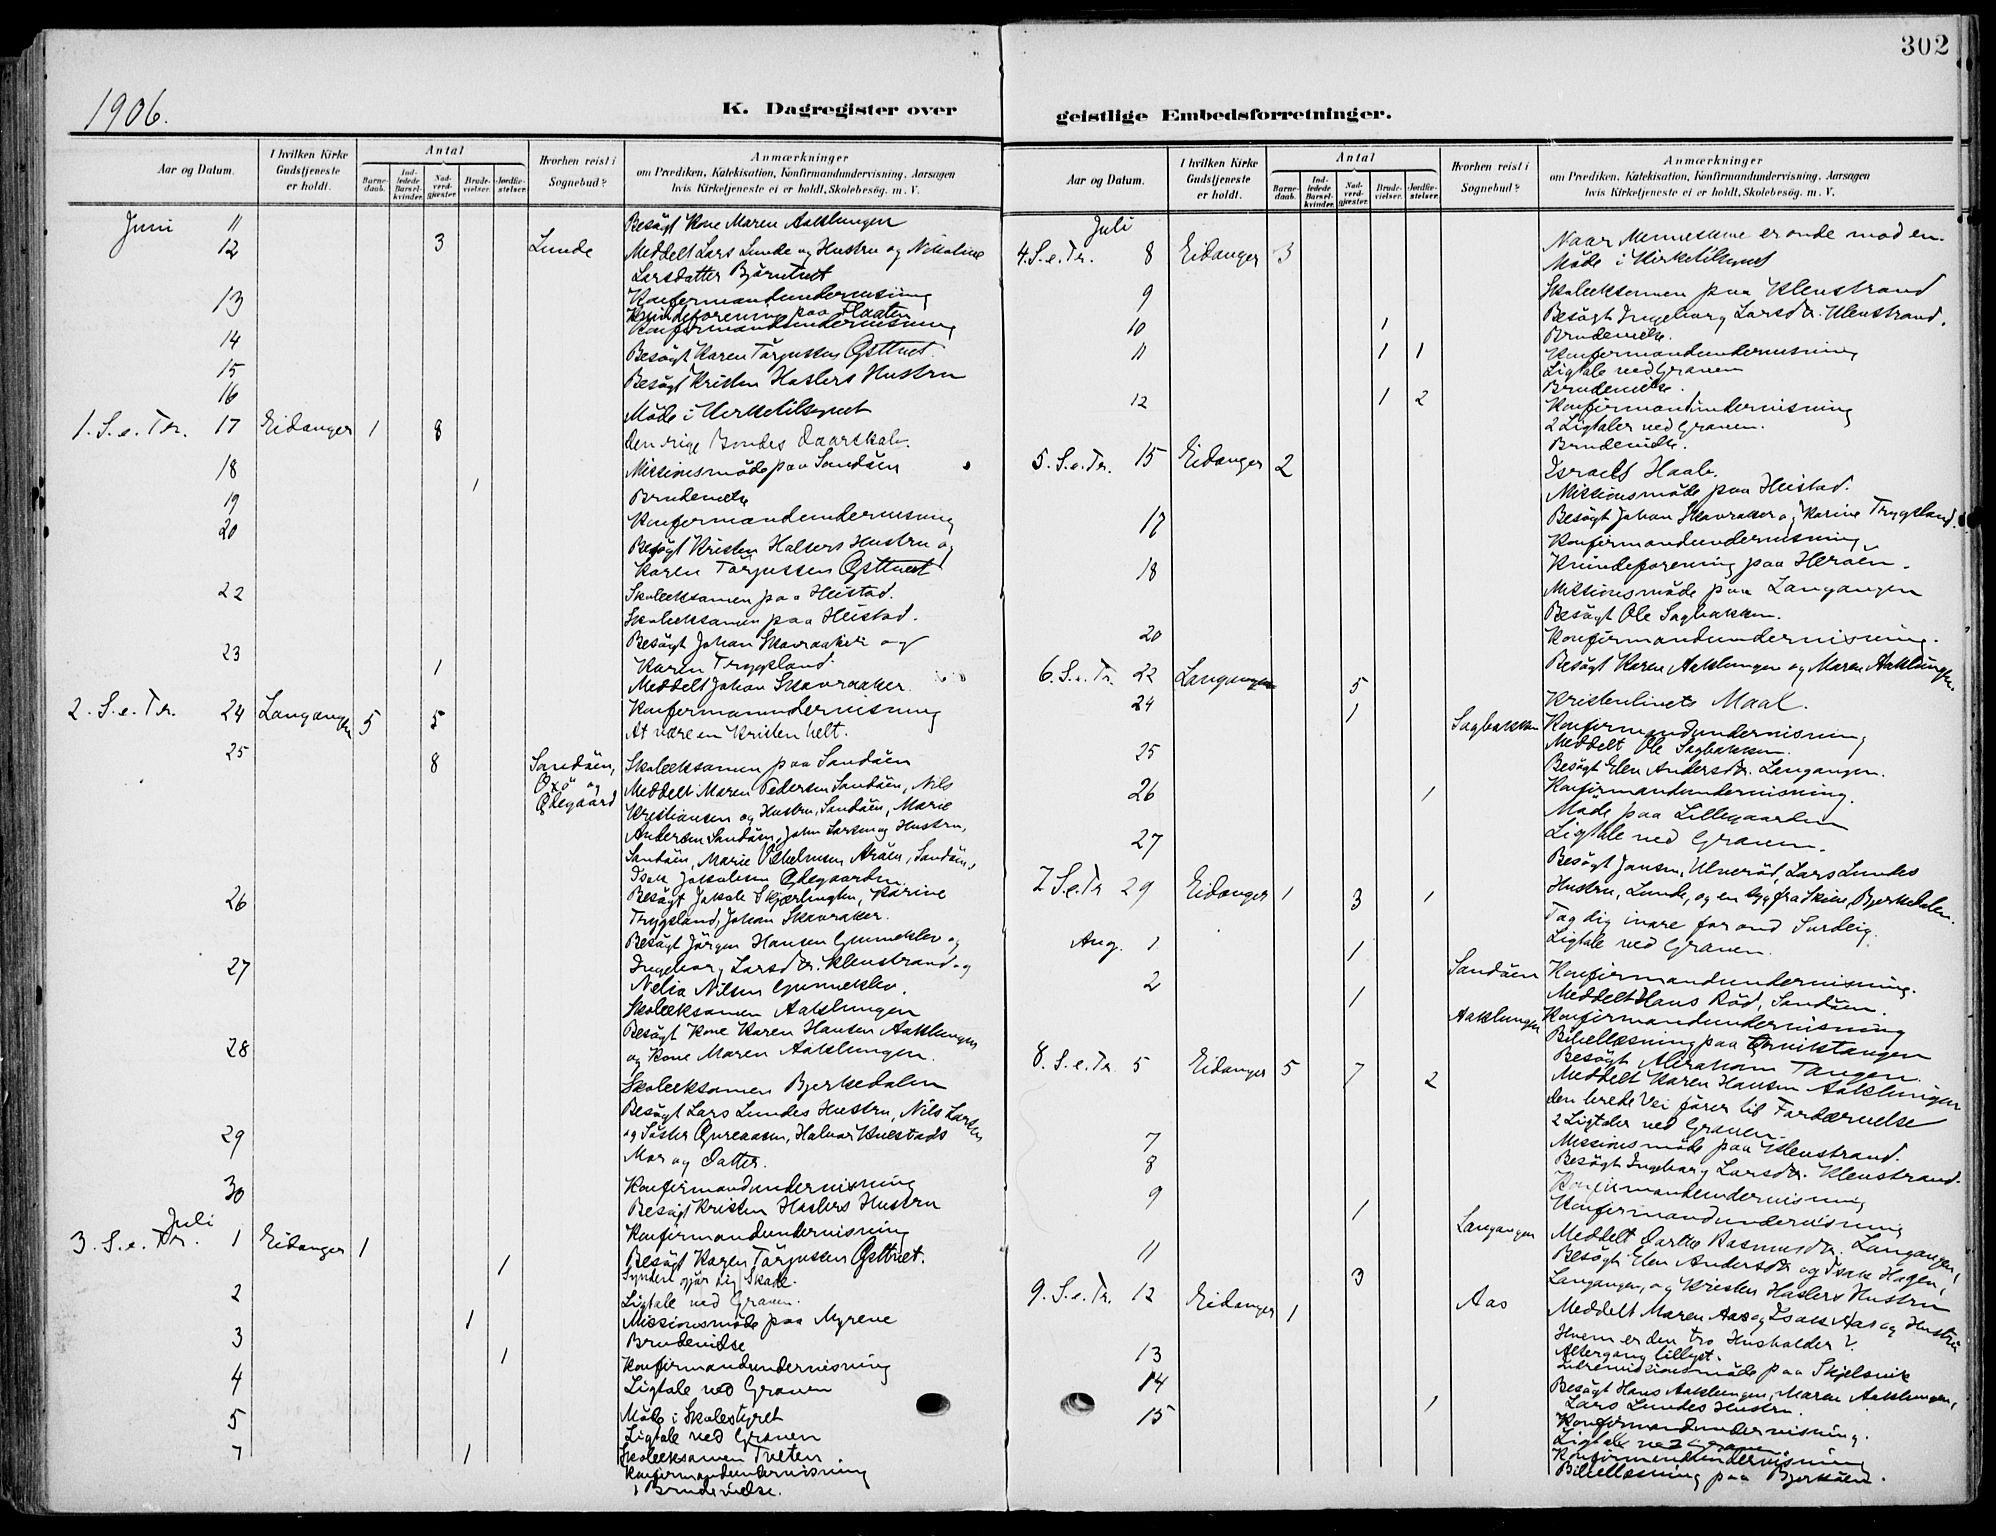 302
1906.
K. Dagregister over
geistlige Embedsforretninger.
Aar og Datum.
I hvilken Kirke Gudstjeneste er holdt.
Antal
Barnedaab.
Indledede Barselkvinder.
Nadverdgjæster.
Brudevielser.
Jordfæstelser.
Hvorhen reist i Sognebud?
Anmærkninger
om Prædiken, Katekisation, Konfirmandundervisning, Aarsagen
hvis Kirketjeneste ei er holdt, Skolebesøg. m. V.
Juni 11 Besøgt Kone Maren Aaklungen
12 3 Lunde Meddelt Lars Lunde og Hustru og Nikoline
Larsdatter Bjørntvet
13 Konfirmandundervisning
Kvindeforening paa Flaaten
Konfirmandundervisning
14
Besøgt Karen Törgussen Østtvet.
15
Besøgt Kristen Haslers Hustru
16
Møde i Kirketilsynet
1. S. e. Tr. 17 Eidanger 1 8 Den rige Bondes Daarskab.
18 Missionsmøde paa Sandöen
1 Brudevielse
19
Konfirmandundervisning
20
Besøgt Kristen Haslers Hustru og
Karen Törgussen Østtvet
22 Skoleeksamen paa Heistad.
Skoleeksamen paa Heistad.
Besøgt Johan Skavraaker og
23 Karen Trygsland
1 Meddelt Johan Skavraaker.
2. S. e. Tr. 24 Langangen 5 5 Konfirmanundervisning
At være en Kristen helt.
25 8 Sandöen, Skoleeksamen paa Sandöen
Oxö og Meddelt Maren Pedersen Sandöen, Nils
Ødegaard Kristiansen og Hustru, Sandöen, Marie
Andersen Sandöen, John Larsen og Hustru,
Sandöen, Marie Vilhelmsen Aröen, Sandöen,
Isak Jakobsen Ødegaarden
26 Besøgt Jakob Skjærlingken, Karine
Trygsland, Johan Skavraker.
Besøgt Jörgen Hansen Gunneklev og
27 Ingeborg Larsdtr. Klenstrand og
Nelia Nilsen Gunneklev.
Skoleeksamen Aaklungen
Besøgt Kone Karen Hansen Aaklungen
28 og Kone Maren Aaklungen.
Skoleeksamen Bjerkedalen
Besøgt Lars Lundes Hustru, Nils Larsen
29 og Søster, Halvor
Mor og Datter.
30 Konfirmandundervisning
Besøgt Kristen Haslers Hustru
Juli
3. S. e. Tr. 1 Eidanger 1 Konfirmandundervisning
1 Besøgt Karen Törgussen Østtvet.
Synden gjør dig Skade.
2 Ligtale ved Graven.
1 Missionsmøde paa Myrene
3 Brudevielse
1 Konfirmandundervisning
4 Ligtale ved Graven
5 Møde i Skolestyret
Ligtale ved Graven
7 1 Skoleeksamen Tveten
Konfirmandundervisning
1 Brudevielse.
Aar og Datum.
I hvilken Kirke Gudstjeneste er holdt.
Antal
Barnedaab.
Indledede Barselkvinder.
Nadverdgjæster.
Brudevielser.
Jordfæstelser.
Hvorhen reist i Sognebud?
Anmærkninger
om Prædiken, Katekisation, Konfirmandundervisning, Aarsagen
hvis Kirketjeneste ei er holdt, Skolebesøg. m. V.
Juli
4. S. e. Tr. 8 Eidanger 3 Naar Menneskene er onde mod en.
Møde i Kirketilsynet
9 Skoleeksamen paa Klenstrand
Besøgt Ingeborg Larsdtr. Klenstrand.
10 1 Brudevielse.
11 1 1 Konfirmandundervisning
Ligtale ved Graven
Brudevielse.
12 1 2 Konfirmandundervisning
2 Ligtaler ved Graven.
Brudevielse.
5. S. e. Tr. 15 Eidanger 2 Israels Haab.
Missionsmøde paa Heistad.
17 Besøgt Johan Skavraker og Karine Trygsland.
Konfirmandundervisning
18 Kvindeforening paa Heröen.
Missionsmøde paa Langangen
Besøgt Ole Sagbakken.
20 Konfirmandundervisning.
Besøgt Karen Aaklungen og Maren Aaklungen.
6. S. e. Tr. 22 Langangen 5 Kristenlivets Maal.
24 1 Sagbakken Konfirmandundervisning
Meddelt Ole Sagbakken.
25 Besøgt Elen Andersdtr. Langangen.
26 1 Konfirmandundervisning.
Møde paa Lillegaarden
Ligtale ved Graven.
27
Besøgt Jansen, Ulverød, Lars Lundes
Hustru, Lunde, og en syg fra Skien, Bjerkedalen.
7 S. e. Tr 29 Eidanger 1 3 1 Tag dig ivare for ond Surdeig.
Ligtale ved Graven.
Aug. 1 1 Sandöen Konfirmandundervisning.
Meddelt Hans Röd, Sandöen.
2 1 Aaklungen Konfirmandundervisning
Bibellæsning paa Ørvikstangen
Besøgt Abraham Tangen.
Meddelt Karen Hansen Aaklungen
8. S. e. Tr. 5 Eidanger 5 7 2 Den brede Vei fører til Fortærvelse
2 Ligtaler ved Graven.
7 Missionsmøde paa Klenstrand.
8 Besøgt Ingeborg Larsdtr. Klenstrand.
Konfirmandundervisning
9 1 Langangen Konfirmandundervisning
Meddelt Dorthe Rasmusdtr. Langangen,
11 Besøgt Elen Andersdtr og Isak Hagen,
Langangen, og Kristen Haslers Hustru
3 Aas Meddelt Maren Aas og Isak Aas og Hustru
9. S. e. Tr. 12 Eidanger 1 Hvem er den tro Husholder?
Altergang tillyst.
13 Indremissionsmøde paa Skjelsvik
14 Besøgt Hans Aaklungen, Maren Aaklungen,
Lars Lundes Hustru.
15 1 Konfirmandundervisning.
Ligtale ved Graven.
Konfirmandundervisning
Bibellæsning paa Bjerköen.